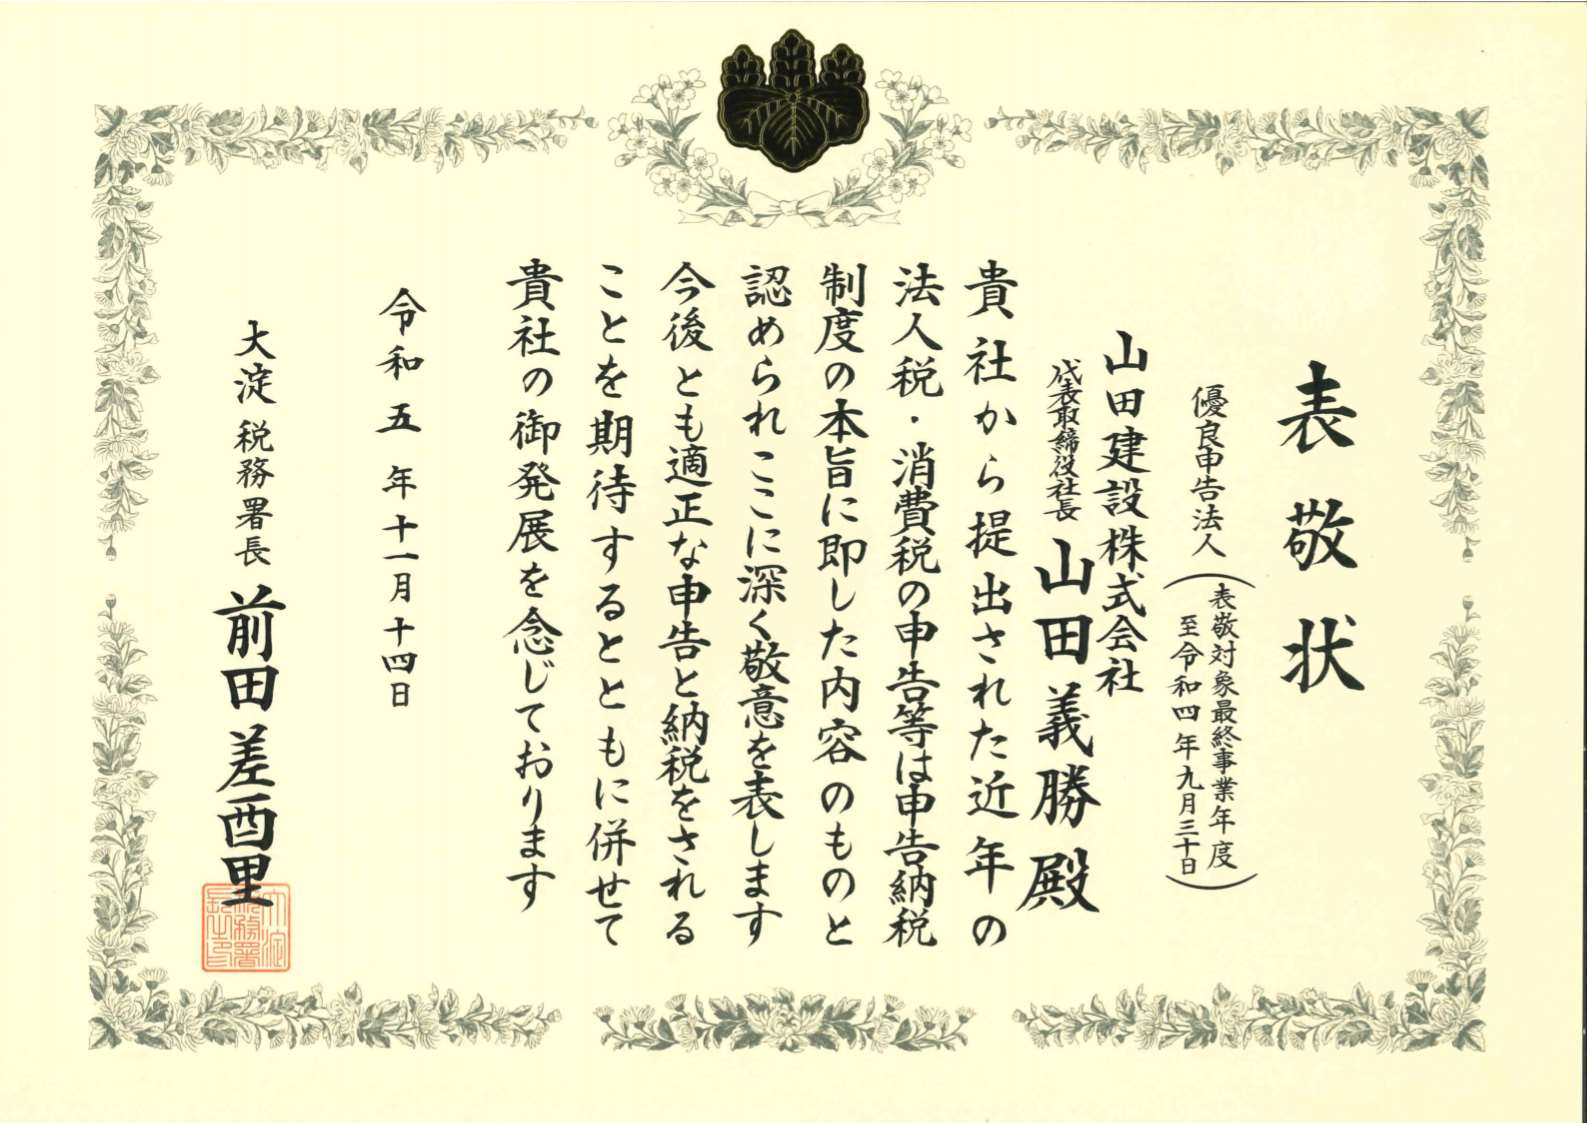 表敬状
優良申告法人
（表敬対象最終事業年度
至令和四年九月三十日）
山田建設株式会社
代表取締役社長 山田義勝殿
貴社から提出された近年の
法人税・消費税の申告等は申告納税
制度の本旨に即した内容のものと
認められここに深く敬意を表します
今後とも適正な申告と納税をされる
ことを期待するとともに併せて
貴社の御発展を念じております
令和五年十一月十四日
大淀税務署長 前田差酉里
大淀
税務署
長之印